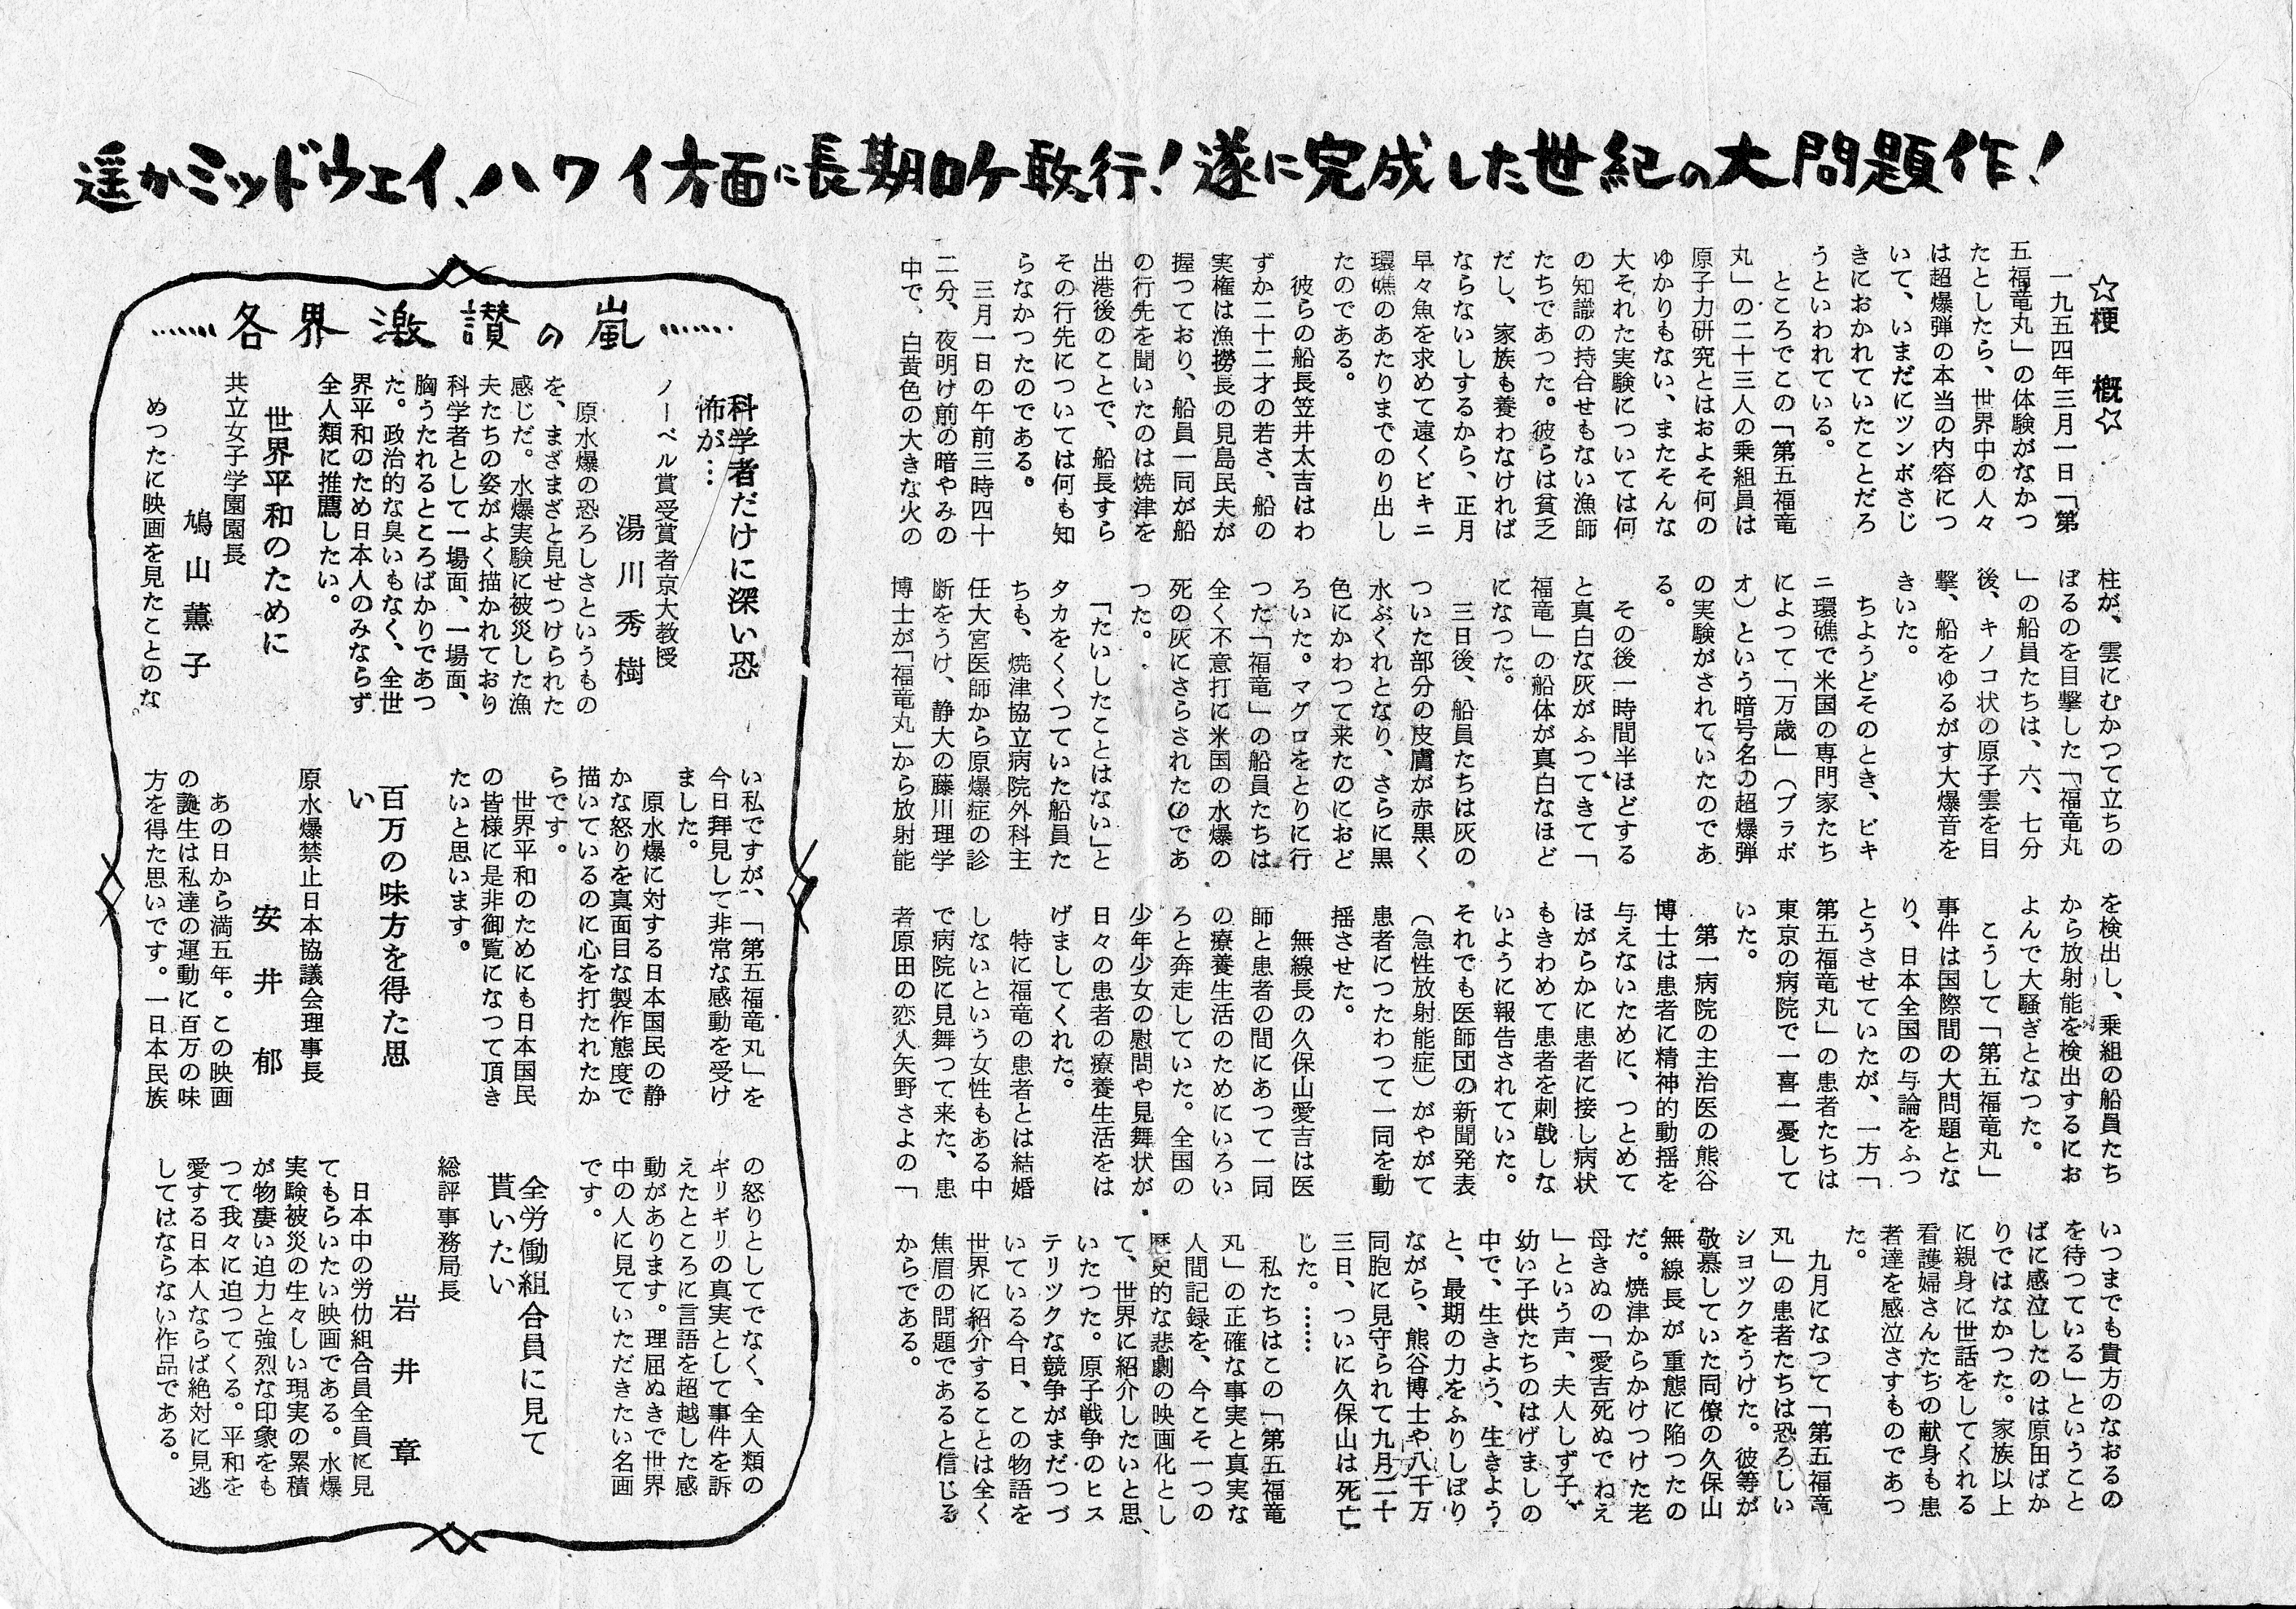 遥かミッドウェイ、ハワイ方面に長期ロケ敢行！遂に完成した世紀の大問題作！
☆梗　概☆
一九五四年三月一日「第
五福竜丸」の体験がなかつ
たとしたら、世界中の人々
は超爆弾の本当の内容につ
いて、いまだにツンボさじ
きにおかれていたことだろ
うといわれている。
ところでこの「第五福竜
丸」の二十三人の乗組員は
原子力研究とはおよそ何の
ゆかりもない、またそんな
大それた実験については何
の知識の持合せもない漁師
たちであった。彼らは貧乏
だし、家族も養わなければ
ならないしするから、正月
早々魚を求めて遠くビキニ
環礁のあたりまでのり出し
たのである。
彼らの船長笠井太吉はわ
ずか二十二才の若さ、船の
実権は漁撈長の見島民夫が
握つており、船員一同が船
の行先を聞いたのは焼津を
出港後のことで、船長すら
その行先については何も知
らなかつたのである。
三月一日の午前三時四十
二分、夜明け前の暗やみの
中で、白黄色の大きな火の
柱が、雲にむかつて立ちの
ぼるのを目撃した「福竜丸
」の船員たちは、六、七分
後、キノコ状の原子雲を目
撃、船をゆるがす大爆音を
きいた。
ちようどそのとき、ビキ
ニ環礁で米国の専門家たち
によつて「万歳」（ブラボ
オ）という暗号名の超爆弾
の実験がされていたのであ
る。
その後一時間半ほどする
と真白な灰がふつてきて「
福竜」の船体が真白なほど
になつた。
三日後、船員たちは灰の
ついた部分の皮膚が赤黒く
水ぶくれとなり、さらに黒
色にかわつて来たのにおど
ろいた。マグロをとりに行
つた「福竜」の船員たちは
全く不意打に米国の水爆の
死の灰にさらされたのであ
つた。
「たいしたことはない」と
タカをくくつていた船員た
ちも、焼津協立病院外科主
任大宮医師から原爆症の診
断をうけ、静大の藤川理学
博士が「福竜丸」から放射能
を検出し、乗組の船員たち
から放射能を検出するにお
よんで大騒ぎとなつた。
こうして「第五福竜丸」
事件は国際間の大問題とな
り、日本全国の与論をふつ
とうさせていたが、一方「
第五福竜丸」の患者たちは
東京の病院で一喜一憂して
いた。
第一病院の主治医の熊谷
博士は患者に精神的動揺を
与えないために、つとめて
ほがらかに患者に接し病状
もきわめて患者を刺戟しな
いように報告されていた。
それでも医師団の新聞発表
（急性放射能症）がやがて
患者につたわつて一同を動
揺させた。
無線長の久保山愛吉は医
師と患者の間にあつて一同
の療養生活のためにいろい
ろと奔走していた。全国の
少年少女の慰問や見舞状が
日々の患者の療養生活をは
げましてくれた。
特に福竜の患者とは結婚
しないという女性もある中
で病院に見舞つて来た、患
者原田の恋人矢野さよの「
いつまでも貴方のなおるの
を待つている」ということ
ばに感泣したのは原田ばか
りではなかつた。家族以上
に親身に世話をしてくれる
看護婦さんたちの献身も患
者達を感泣さすものであつ
た。
九月になつて「第五福竜
丸」の患者たちは恐ろしい
シヨツクをうけた。彼等が
敬慕していた同僚の久保山
無線長が重態に陥つたの
だ。焼津からかけつけた老
母きぬの「愛吉死ぬでねえ
」という声、夫人しず子、
幼い子供たちのはげましの
中で、生きよう、生きよう
と、最期の力をふりしぼり
ながら、熊谷博士や八千万
同胞に見守られて九月二十
三日、ついに久保山は死亡
じた。……
私たちはこの「第五福竜
丸」の正確な事実と真実な
人間記録を、今こそ一つの
歴史的な悲劇の映画化とし
て、世界に紹介したいと思
いたつた。原子戦争のヒス
テリツクな競争がまだつづ
いている今日、この物語を
世界に紹介することは全く
焦眉の問題であると信じる
からである。
……各界激讃の嵐……
科学者だけに深い恐
怖が…
ノーベル賞受賞者京大教授
湯川秀樹
原水爆の恐ろしさというもの
を、まざまざと見せつけられた
感じだ。水爆実験に被災した漁
夫たちの姿がよく描かれており
科学者として一場面、一場面、
胸うたれるところばかりであつ
た。政治的な臭いもなく、全世
界平和のため日本人のみならず
全人類に推薦したい。
世界平和のために
共立女子学園園長
鳩山薫子
めつたに映画を見たことのな
い私ですが、「第五福竜丸」を
今日拝見して非常な感動を受け
ました。
原水爆に対する日本国民の静
かな怒りを真面目な製作態度で
描いているのに心を打たれたか
らです。
世界平和のためにも日本国民
の皆様に是非御覧になつて頂き
たいと思います。
百万の味方を得た思
い
原水爆禁止日本協議会理事長
安井郁
あの日から満五年。この映画
の誕生は私達の運動に百万の味
方を得た思いです。一日本民族
の怒りとしてでなく、全人類の
ギリギリの真実として事件を訴
えたところに言語を超越した感
動があります。理屈ぬきで世界
中の人に見ていただきたい名画
です。
全労働組合員に見て
貰いたい
総評事務局長
岩井章
日本中の労仂組合員全員に見
てもらいたい映画である。水爆
実験被災の生々しい現実の累積
が物凄い迫力と強烈な印象をも
つて我々に迫つてくる。平和を
愛する日本人ならば絶対に見逃
してはならない作品である。